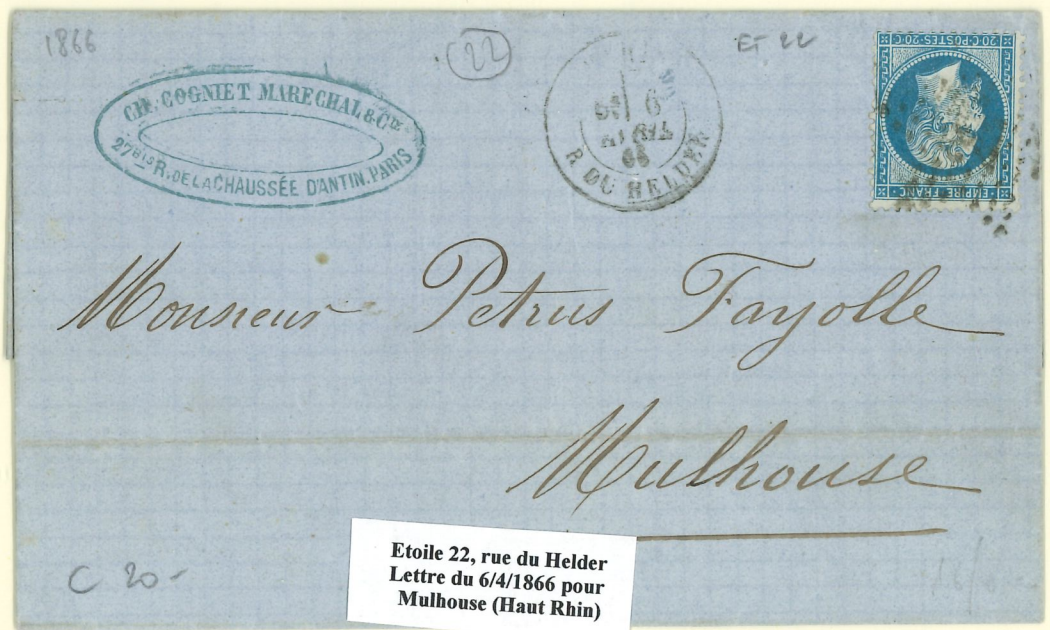 1866
22
ET 22
CH. COGNIET MARECHAL & CIE
27BIS R. DE LA CHAUSSÉE D'ANTIN. PARIS
6
AVRIL
66
R. DU HELDER
20·C·POSTES·20·C
EMPIRE FRANC
Monsieur Petrus Fayolle
Mulhouse
C 20-
Etoile 22, rue du Helder
Lettre du 6/4/1866 pour
Mulhouse (Haut Rhin)